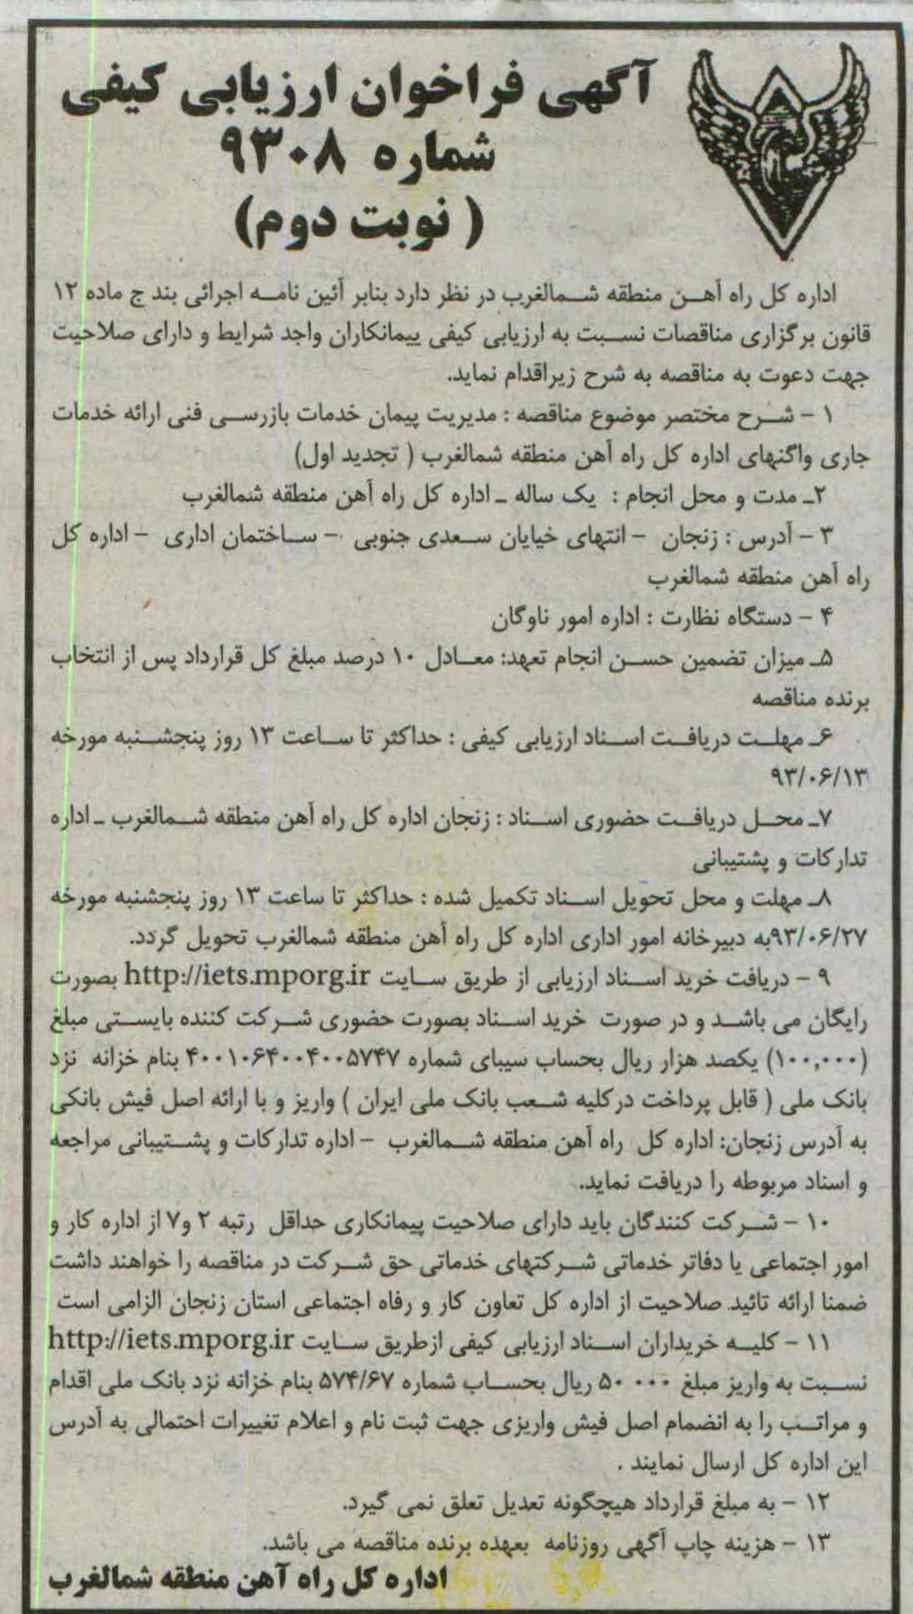 آگهی فراخوان ارزیابی کیفی
شماره ۹۳۰۸
( نوبت دوم)
اداره کل راه آهـن منطقه شـمالغرب در نظر دارد بنابر آئین نامـه اجرائی بند ج ماده ۱۲
قانون برگزاری مناقصات نسـبت به ارزیابی کیفی پیمانکاران واجد شرایط و دارای صلاحیت
جهت دعوت به مناقصه به شرح زیراقدام نماید.
۱ – شـرح مختصر موضوع مناقصه : مدیریت پیمان خدمات بازرسـی فنی ارائه خدمات
جاری واگنهای اداره کل راه آهن منطقه شمالغرب ( تجدید اول)
۲ـ مدت و محل انجام : یک ساله ـ اداره کل راه آهن منطقه شمالغرب
۳ – آدرس : زنجان – انتهای خیایان سـعدی جنوبی – سـاختمان اداری – اداره کل
راه آهن منطقه شمالغرب
۴ – دستگاه نظارت : اداره امور ناوگان
۵ـ میزان تضمین حسـن انجام تعهد: معـادل ۱۰ درصد مبلغ کل قرارداد پس از انتخاب
برنده مناقصه
۶ـ مهلـت دریافـت اسـناد ارزیابی کیفی : حداکثر تا سـاعت ۱۳ روز پنجشـنبه مورخه
۹۳/۰۶/۱۳
۷ـ محـل دریافـت حضوری اسـناد : زنجان اداره کل راه آهن منطقه شـمالغرب ـ اداره
تدارکات و پشتیبانی
۸ـ مهلت و محل تحویل اسـناد تکمیل شده : حداکثر تا ساعت ۱۳ روز پنجشنبه مورخه
۹۳/۰۶/۲۷به دبیرخانه امور اداری اداره کل راه آهن منطقه شمالغرب تحویل گردد.
۹ – دریافت خرید اسـناد ارزیابی از طریق سـایت http://iets.mporg.ir بصورت
رایگان می باشـد و در صورت خرید اسـناد بصورت حضوری شـرکت کننده بایستی مبلغ
(۱۰۰,۰۰۰) یکصد هزار ریال بحساب سیبای شماره ۴۰۰۱۰۶۴۰۰۴۰۰۵۷۴۷ بنام خزانه نزد
بانک ملی ( قابل پرداخت درکلیه شـعب بانک ملی ایران ) واریز و با ارائه اصل فیش بانکی
به آدرس زنجان: اداره کل راه آهن منطقه شـمالغرب – اداره تدارکات و پشـتیبانی مراجعه
و اسناد مربوطه را دریافت نماید.
۱۰ – شـرکت کنندگان باید دارای صلاحیت پیمانکاری حداقل رتبه ۲ و۷ از اداره کار و
امور اجتماعی یا دفاتر خدماتی شـرکتهای خدماتی حق شـرکت در مناقصه را خواهند داشت
ضمنا ارائه تائید صلاحیت از اداره کل تعاون کار و رفاه اجتماعی استان زنجان الزامی است
۱۱ – کلیـه خریداران اسـناد ارزیابی کیفی ازطریق سـایت http://iets.mporg.ir
نسـبت به واریز مبلغ ۵۰ ۰۰۰ ریال بحسـاب شماره ۵۷۴/۶۷ بنام خزانه نزد بانک ملی اقدام
و مراتـب را به انضمام اصل فیش واریزی جهت ثبت نام و اعلام تغییرات احتمالی به آدرس
این اداره کل ارسال نمایند .
۱۲ – به مبلغ قرارداد هیچگونه تعدیل تعلق نمی گیرد.
۱۳ – هزینه چاپ آگهی روزنامه بعهده برنده مناقصه می باشد.
اداره کل راه آهن منطقه شمالغرب